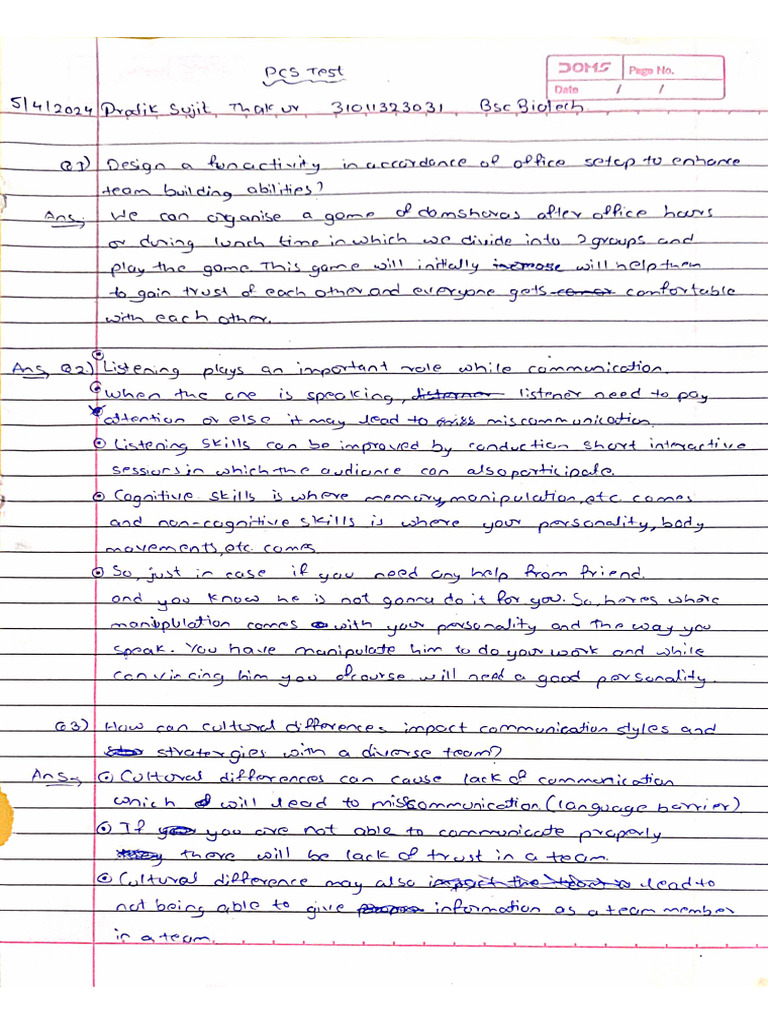 PCS Test
DOMS Page No.
Date / /
5/4/2024 Pratik Sujit Thakur 31011323031 Bsc Biotech
Q1) Design a fun activity in accordance of office setup to enhance
team building abilities?
Ans; We can organise a game of damsharas after office hours
or during lunch time in which we divide into 2 groups and
play the game. This game will initially increase will help them
to gain trust of each other and everyone gets comfortable
with each other.
Ans, Q2.) Listening plays an important role while communication.
When the one is speaking, listener need to pay
attention or else it may lead to miscommunication.
Listening skills can be improved by conduction short interactive
sessions in which the audiance can also participate.
Cognitive skills is where memory, manipulation, etc comes
and non-cognitive skills is where your personality, body
movements, etc. comes.
So, just in case if you need any help from friend.
and you know he is not gonna do it for you. So, heres where
manipulation comes with your personality and the way you
speak. You have manipulate him to do your work and while
convincing him you ofcourse will need a good personality.
Q3) How can cultural differences impact communication styles and
stratergies with a diverse team?
Ans- Cultural differences can cause lack of communication
which will lead to misscommunication (language barrier)
If you are not able to communicate properly
there will be lack of trust in a team.
Cultural difference may also impact the team lead to
not being able to give information as a team member
in a team.